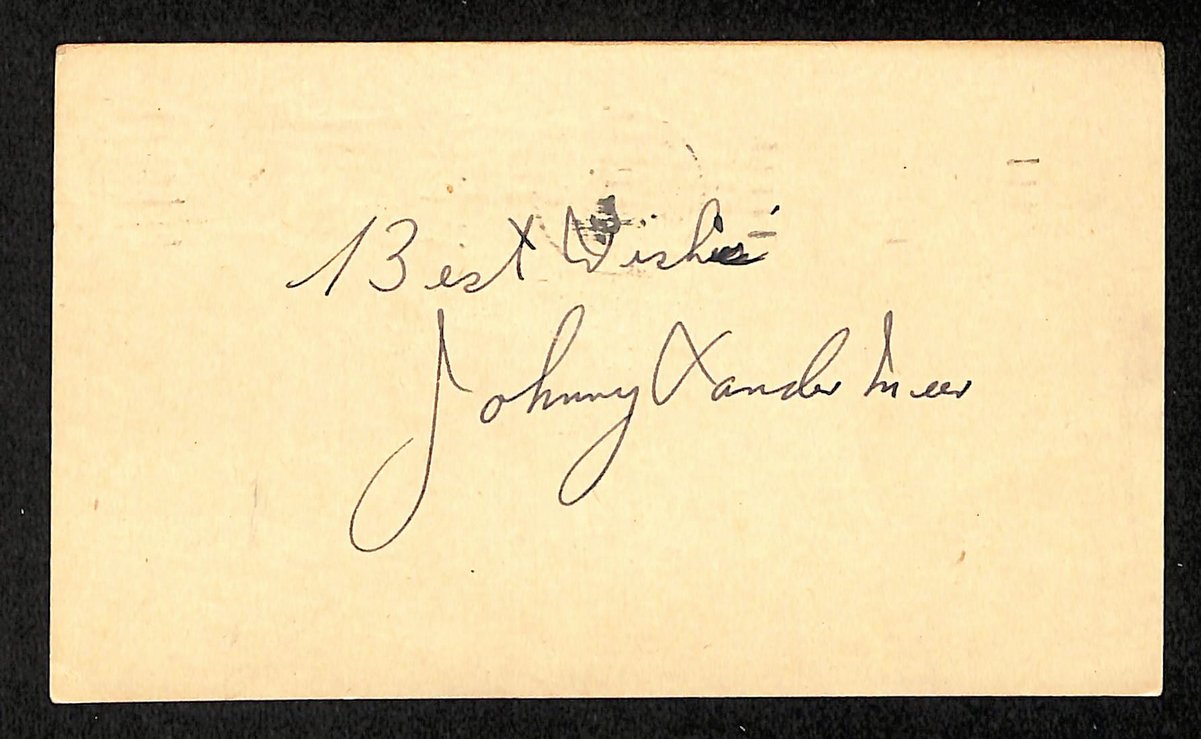 Best Wishes
Johnny Vander Meer